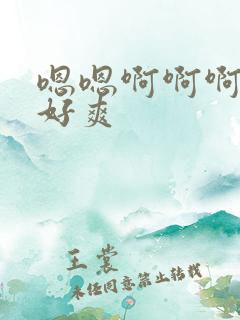 嗯嗯啊啊啊
好爽
王裳
未经同意禁止转载